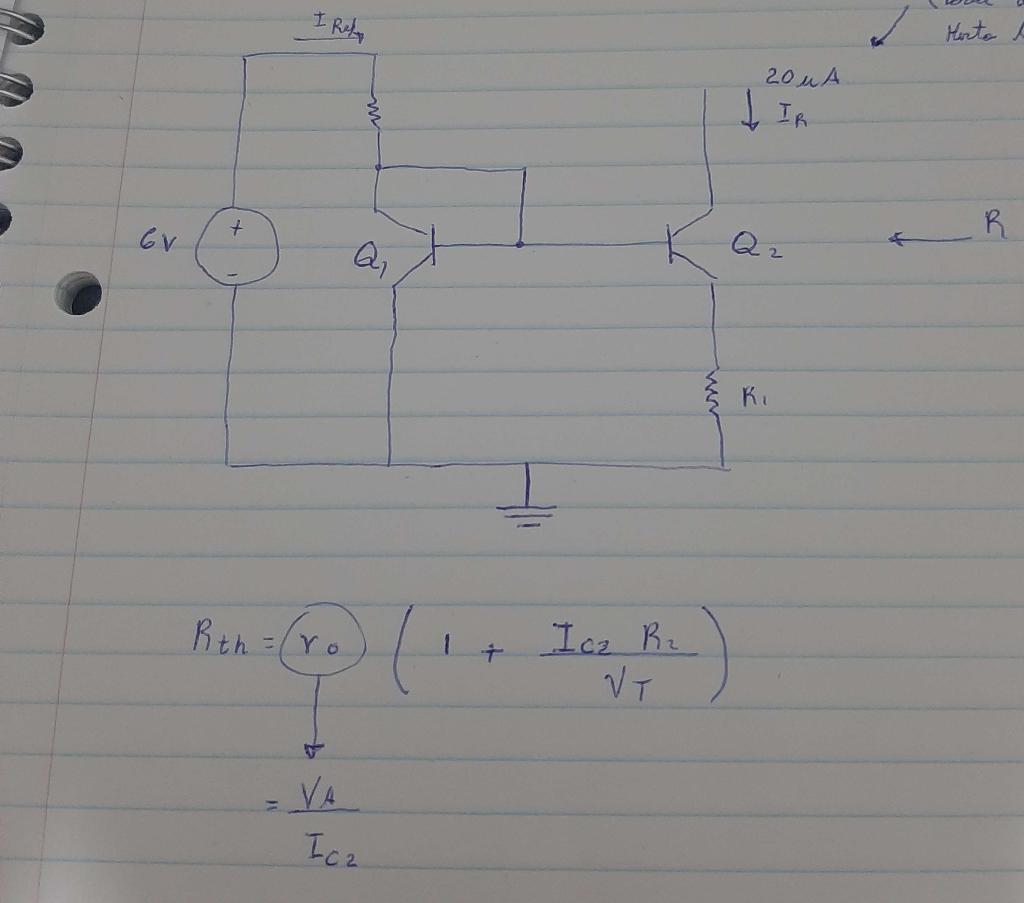 I Ref
20 uA
I R
6V
+
-
Q1
Q2
R
R1
Rth = ro ( 1 + IC2 R2 / VT )
= VA / IC2